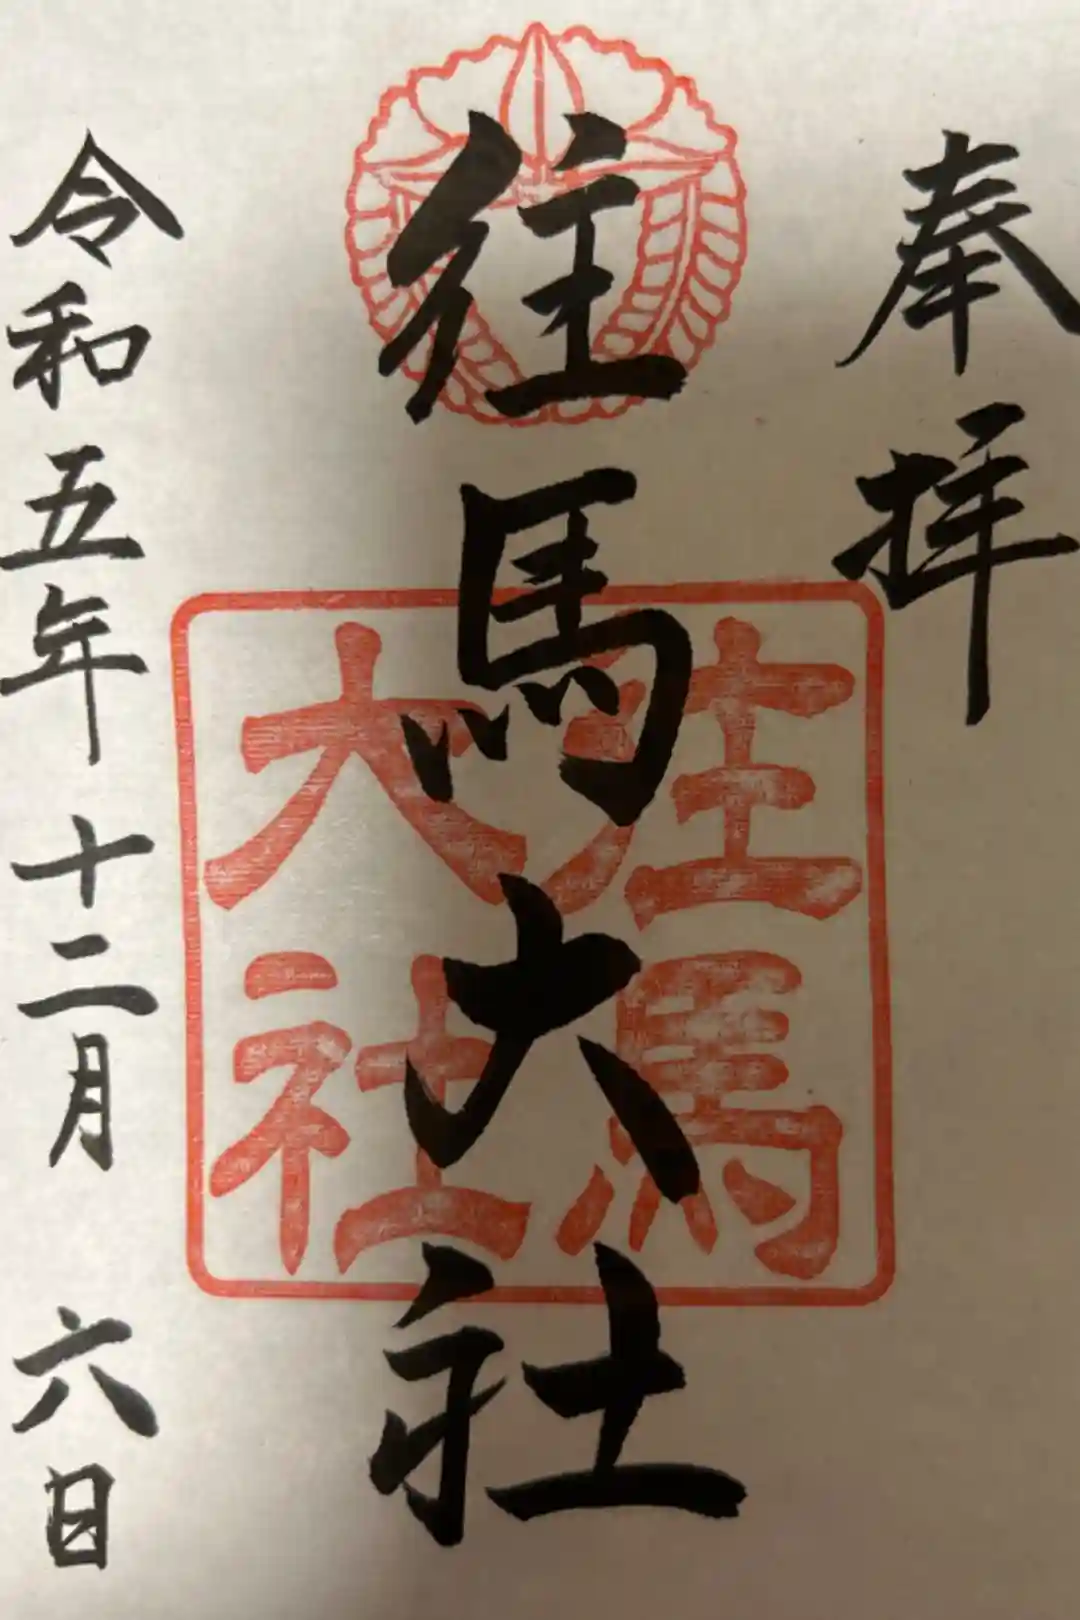 奉拝
往馬大社
往馬大社
令和五年十二月六日